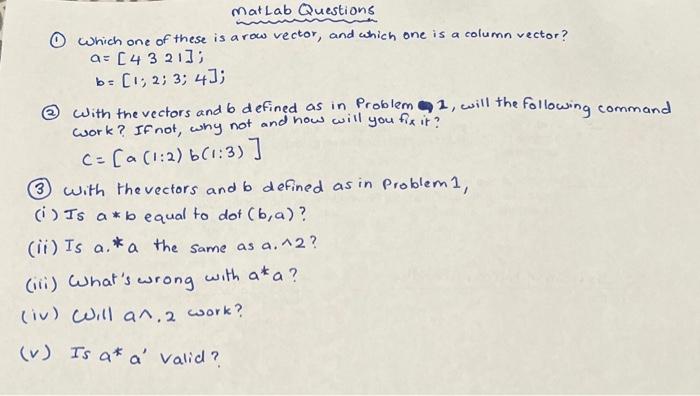 MatLab Questions
① Which one of these is a row vector, and which one is a column vector?
a = [4 3 2 1];
b = [1; 2; 3; 4];
② With the vectors and b defined as in Problem 1, will the following command
work? If not, why not and how will you fix it?
C = [a (1:2) b(1:3) ]
③ With the vectors and b defined as in Problem 1,
(i) Is a * b equal to dot (b,a)?
(ii) Is a.*a the same as a.^2?
(iii) What's wrong with a*a?
(iv) Will a^.2 work?
(v) Is a* a' valid?